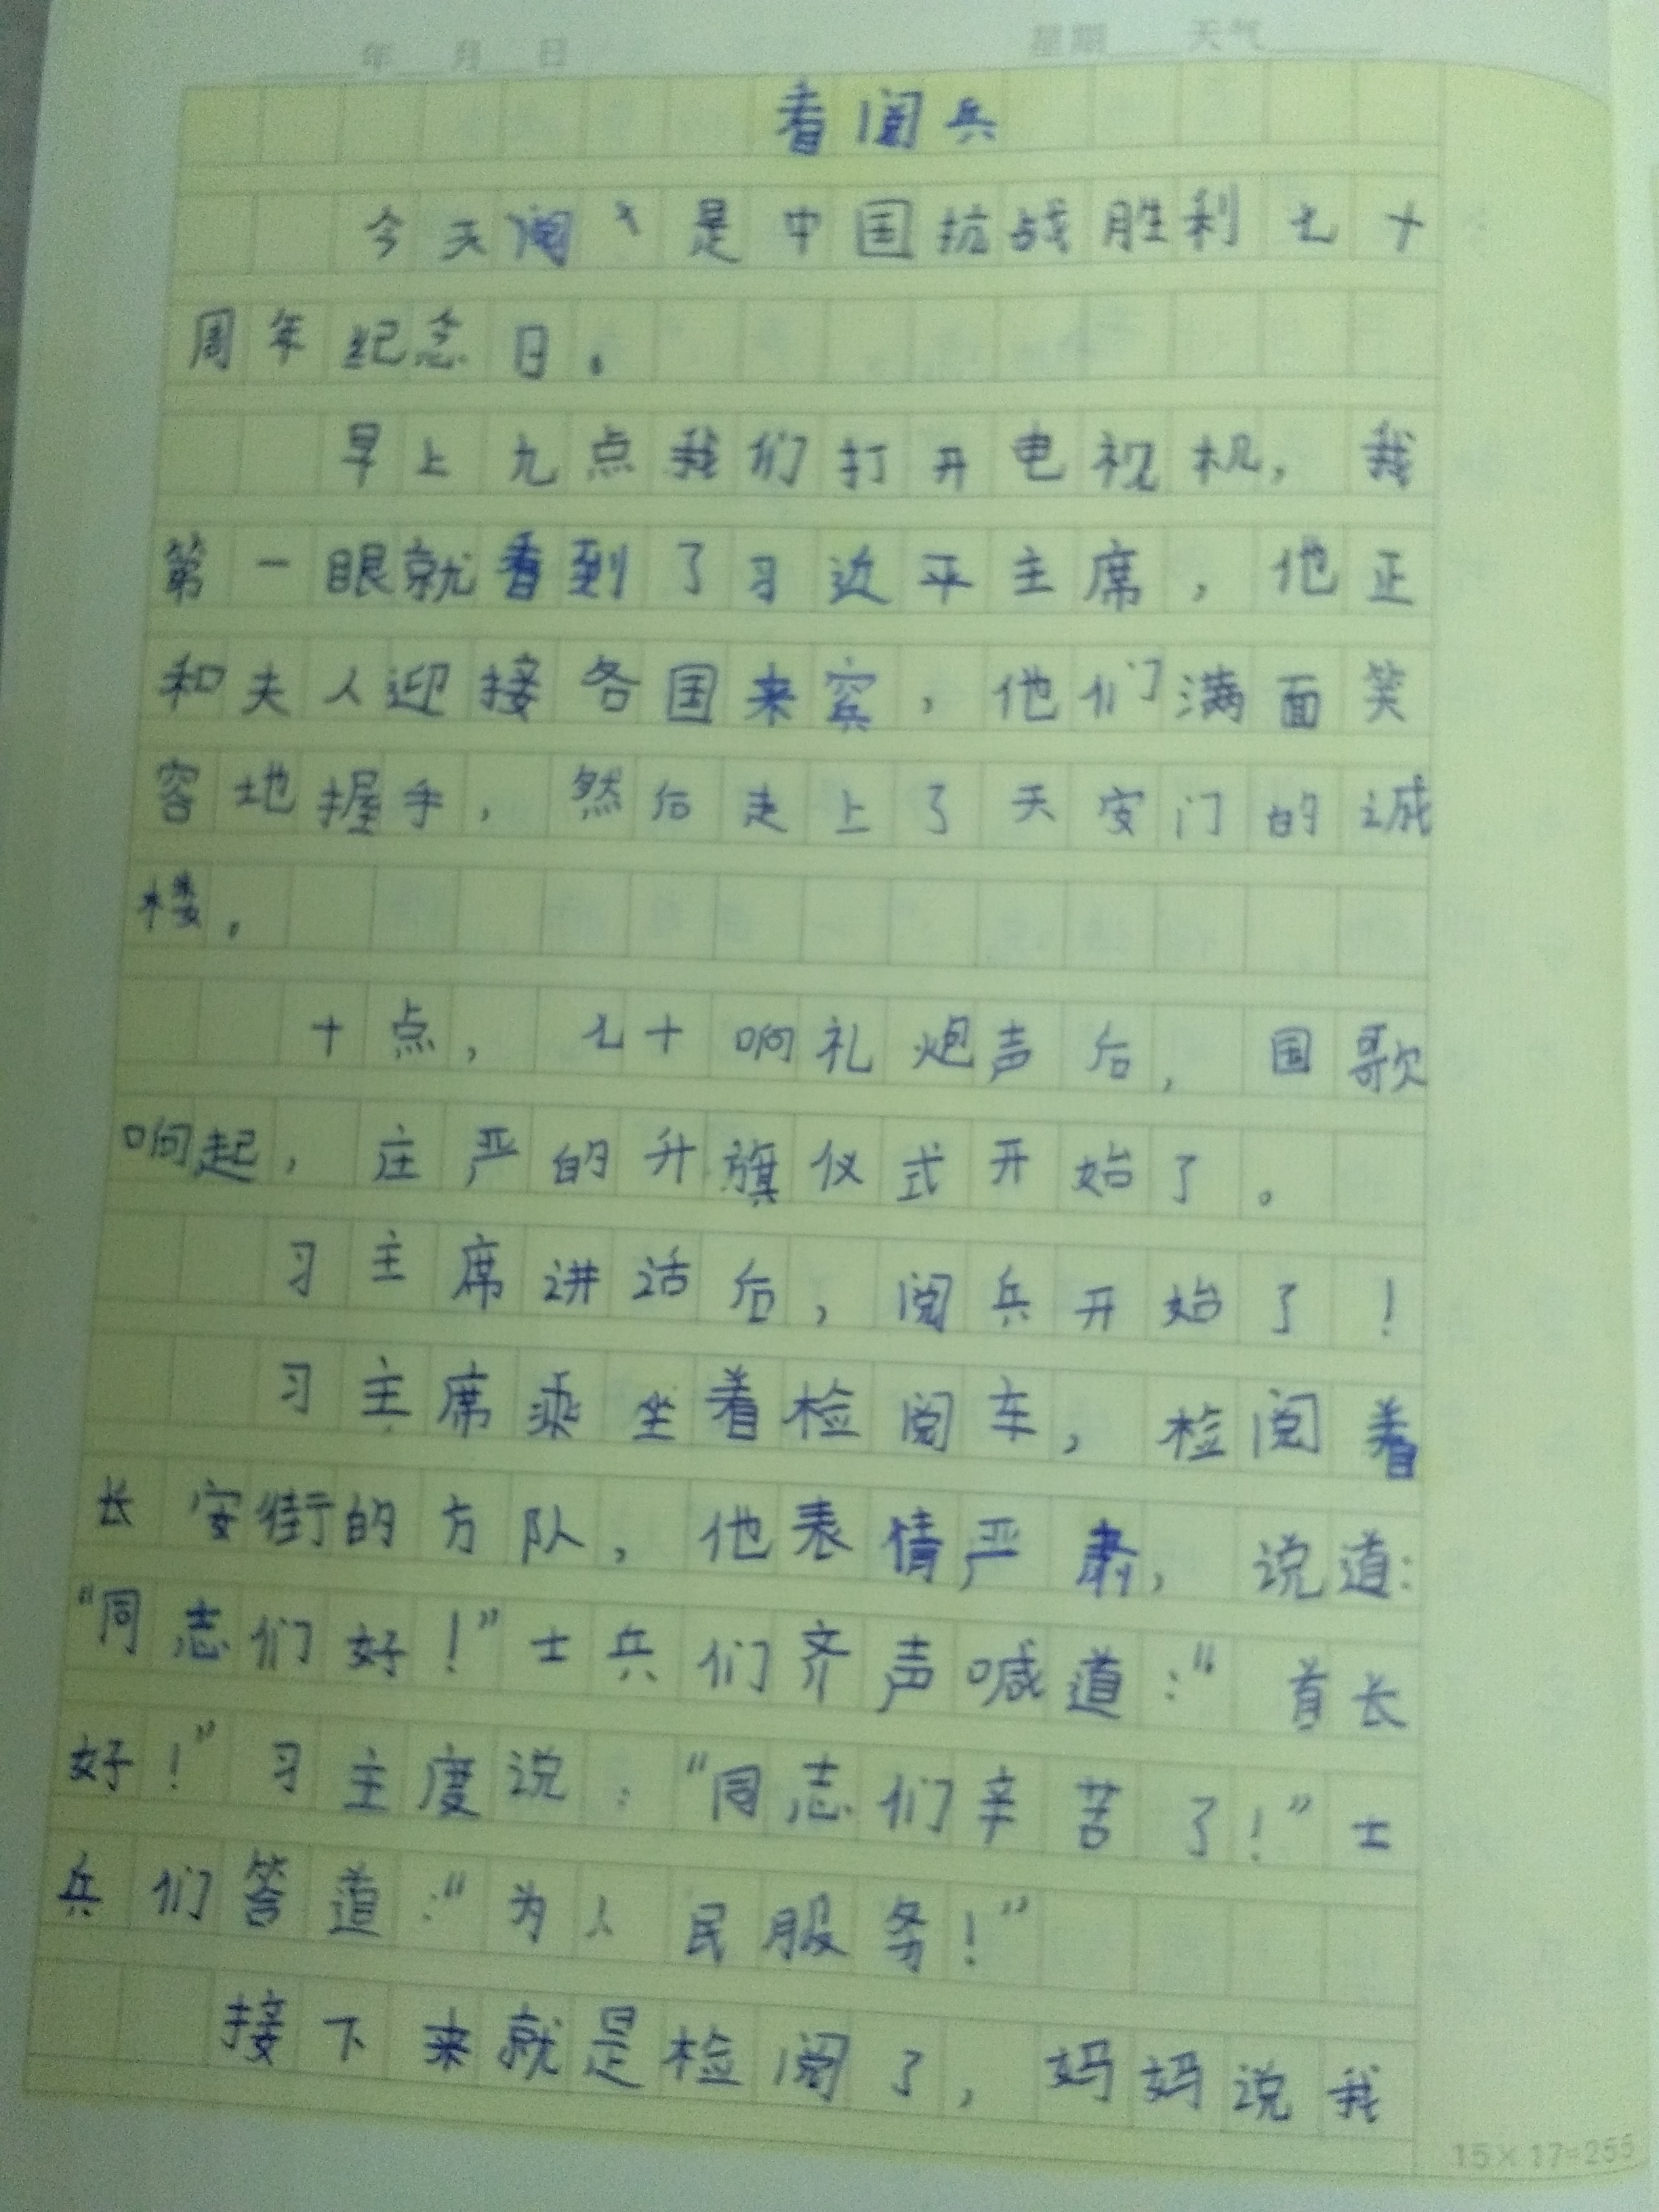 年 月 日 星期 天气
看阅兵
今天是中国抗战胜利七十
周年纪念日。
早上九点我们打开电视机，我
第一眼就看到了习近平主席，他正
和夫人迎接各国来宾，他们满面笑
容地握手，然后走上了天安门的城
楼。
十点，七十响礼炮声后，国歌
响起，庄严的升旗仪式开始了。
习主席讲话后，阅兵开始了！
习主席乘坐着检阅车，检阅着
长安街的方队，他表情严肃，说道：
“同志们好！”士兵们齐声喊道：“首长
好！”习主度说：“同志们辛苦了！”士
兵们答道：“为人民服务！”
接下来就是检阅了，妈妈说我
15×17=255